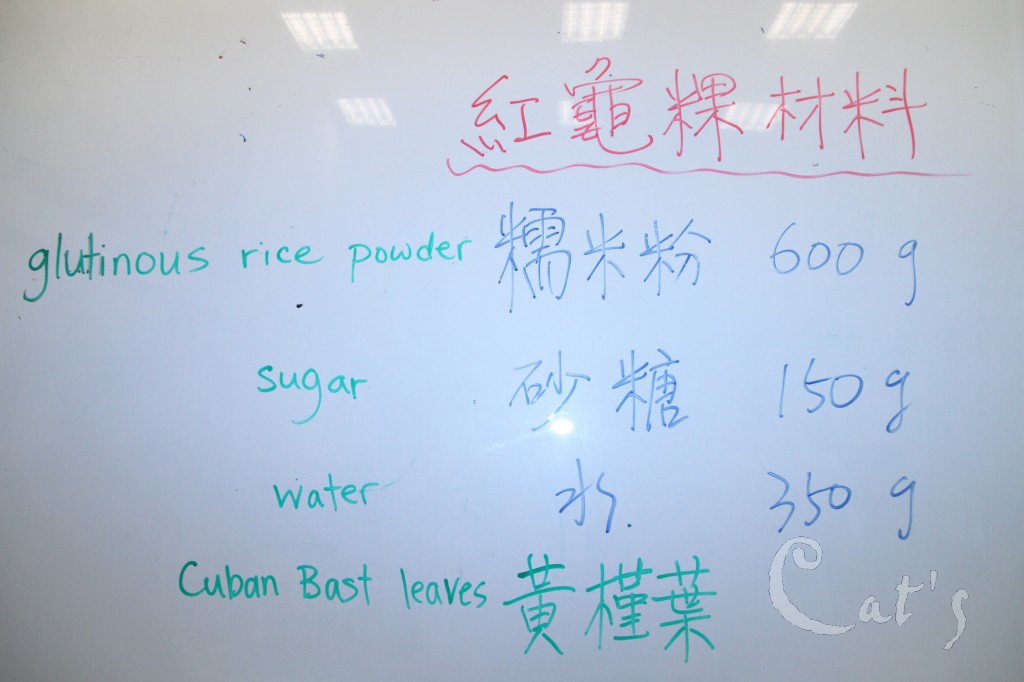 紅龜粿材料
glutinous rice powder 糯米粉 600 g
sugar 砂糖 150 g
water 水. 350 g
Cuban Bast leaves 黃槿葉
Cat's